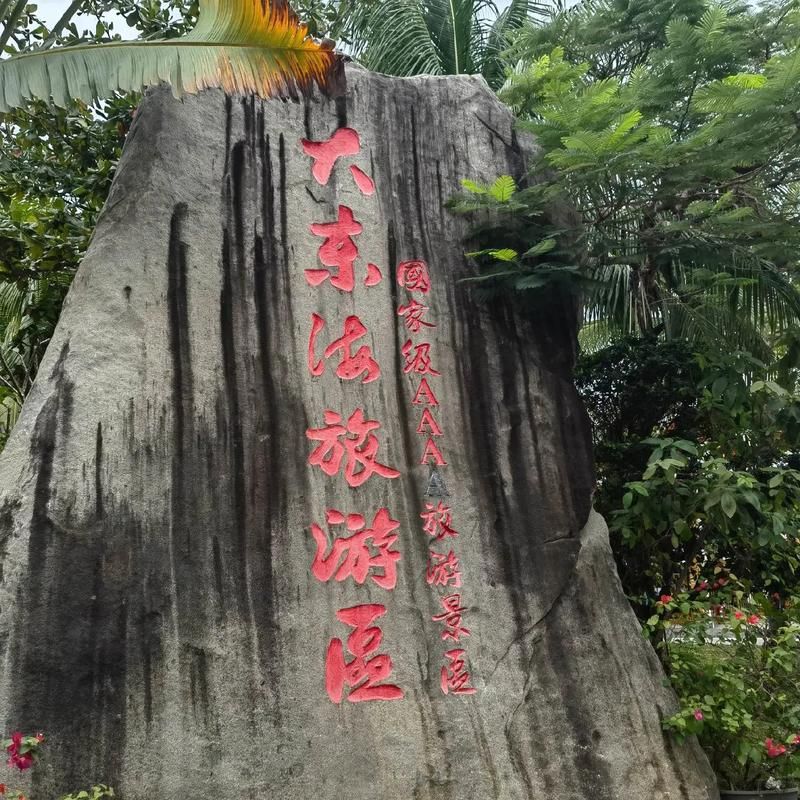 國家级AAAA旅游景區
大东海旅游區